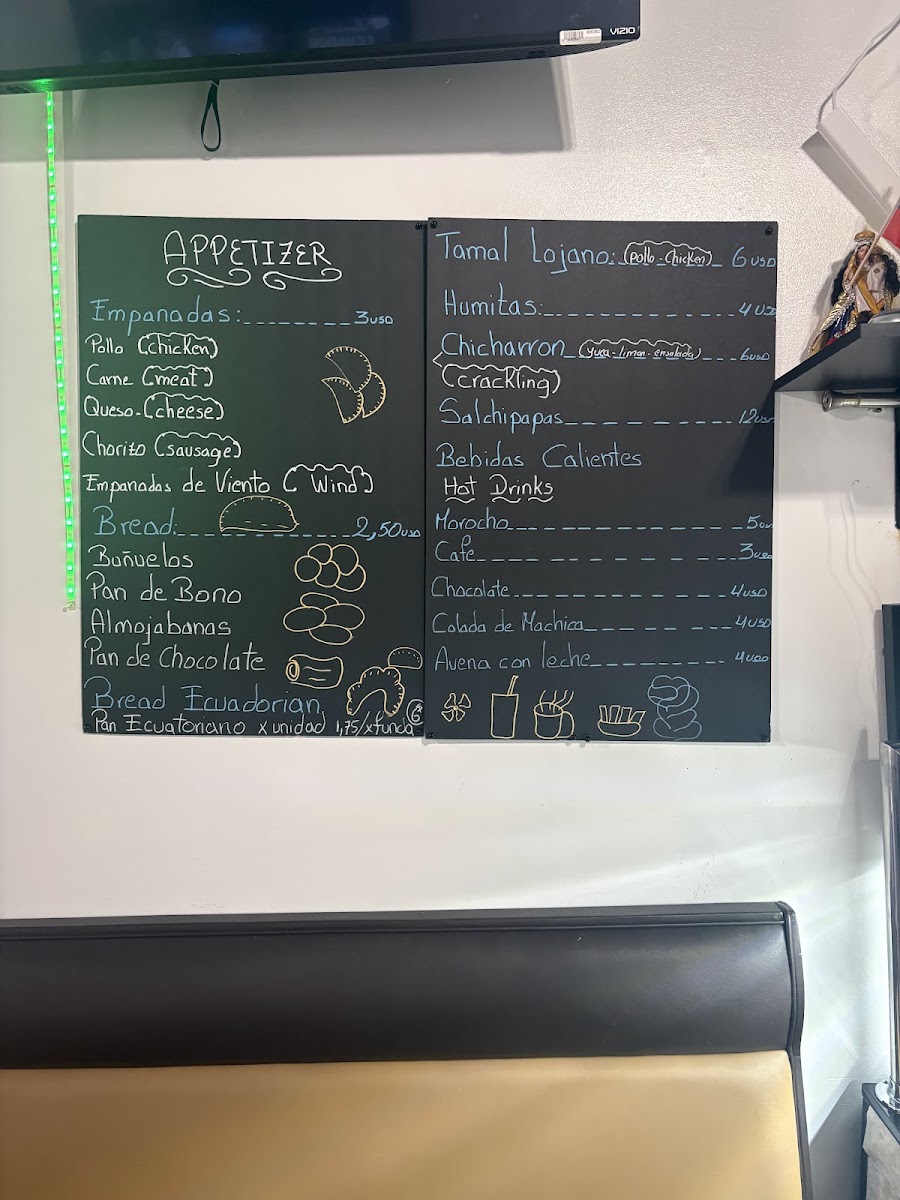 VIZIO
APPETIZER
Empanadas:---------3USD
Pollo (chicken)
Carne (meat)
Queso-(cheese)
Chorizo (sausage)
Empanadas de Viento (Wind)
Bread:------------2,50USD
Buñuelos
Pan de Bono
Almojabanas
Pan de Chocolate
Bread Ecuadorian
Pan Ecuatoriano x unidad 1,75/xfunda 6
Tamal Lojano: (pollo-chicken)_ 6USD
Humitas:------------4USD
Chicharron_(yuca-limon-ensalada)---6USD
(crackling)
Salchipapas---------12USD
Bebidas Calientes
Hot Drinks
Morocho------------5USD
Cafe---------------3USD
Chocolate-----------4USD
Colada de Machica-------4USD
Avena con leche---------4USD